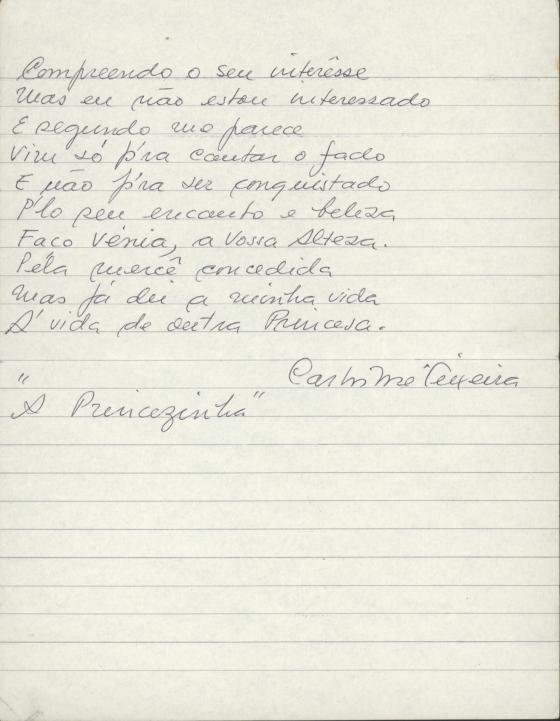 Compreendo o seu interêsse
Mas eu não estou interessado
E segundo me parece
Vim só p'ra cantar o fado
E não p'ra ser conquistado
P'lo seu encanto e beleza
Faço Vénia, a Vossa Alteza.
Pela mercê concedida
Mas já dei a minha vida
Á vida de outra Princesa.
Teixeira
"A Princezinha"